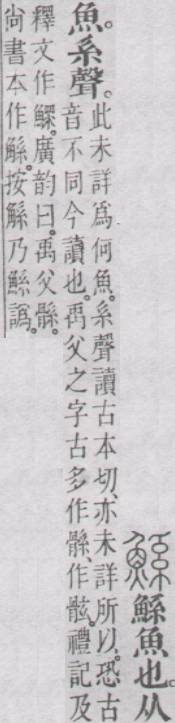 鯀鯀魚也。从
魚。系聲。
此未詳爲何魚。系聲讀古本切、亦未詳所以。恐古
音不同今讀也。禹父之字古多作䯣、作。禮記及
釋文作鰥。廣韵曰。禹父䯣。
尙書本作。按乃鯀譌。